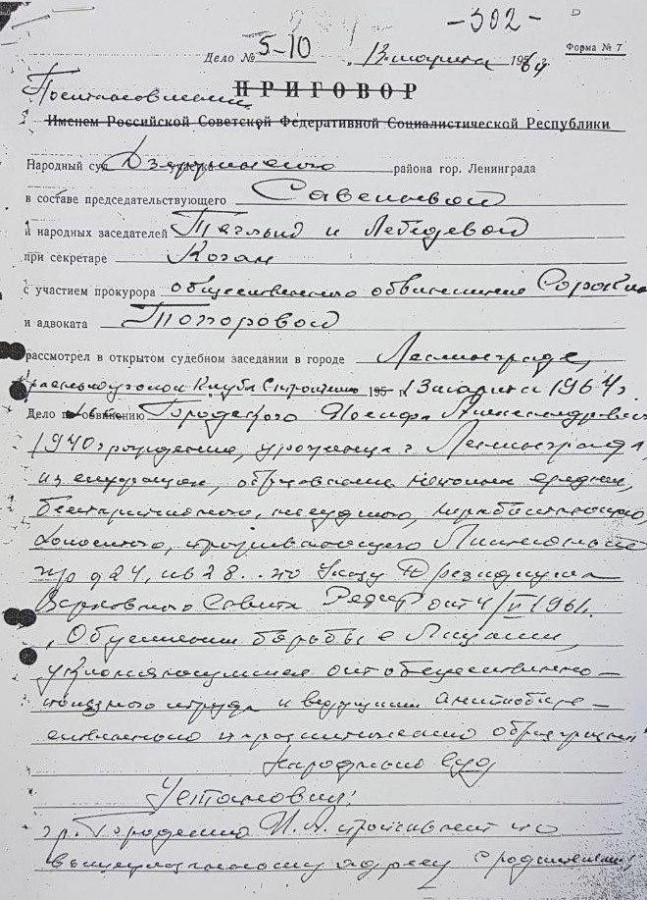 - 302 -
Дело № 5-10 13 марта 1964
Форма № 7
Постановление
ПРИГОВОР
Именем Российской Советской Федеративной Социалистической Республики
Народный суд Дзержинского района гор. Ленинграда
в составе председательствующего Савельевой
и народных заседателей Тяглый и Лебедевой
при секретаре Коган
с участием прокурора общественного обвинителя Сорокин
и адвоката Топоровой
рассмотрел в открытом судебном заседании в городе Ленинграде,
Клуба 195 г. 13 марта 1964 г.
Дело по обвинению Иосифа Александрович
1940 г рождения, уроженца г. Ленинграда,
из служащих, образование неполн средн,
беспартийного, несудимого,
холостого, проживающего
пр д 24, кв 28. по Указу Президиума
Верховного Совета РСФСР от 4/V 1961.
"Об усилении борьбы с лицами,
уклоняющимися от общественно-
полезного труда и ведущими антиобще-
ственный паразитический образ жизни"
Народный суд
Установил:
гр. И. А. проживает по
вышеуказанному адресу с родителями